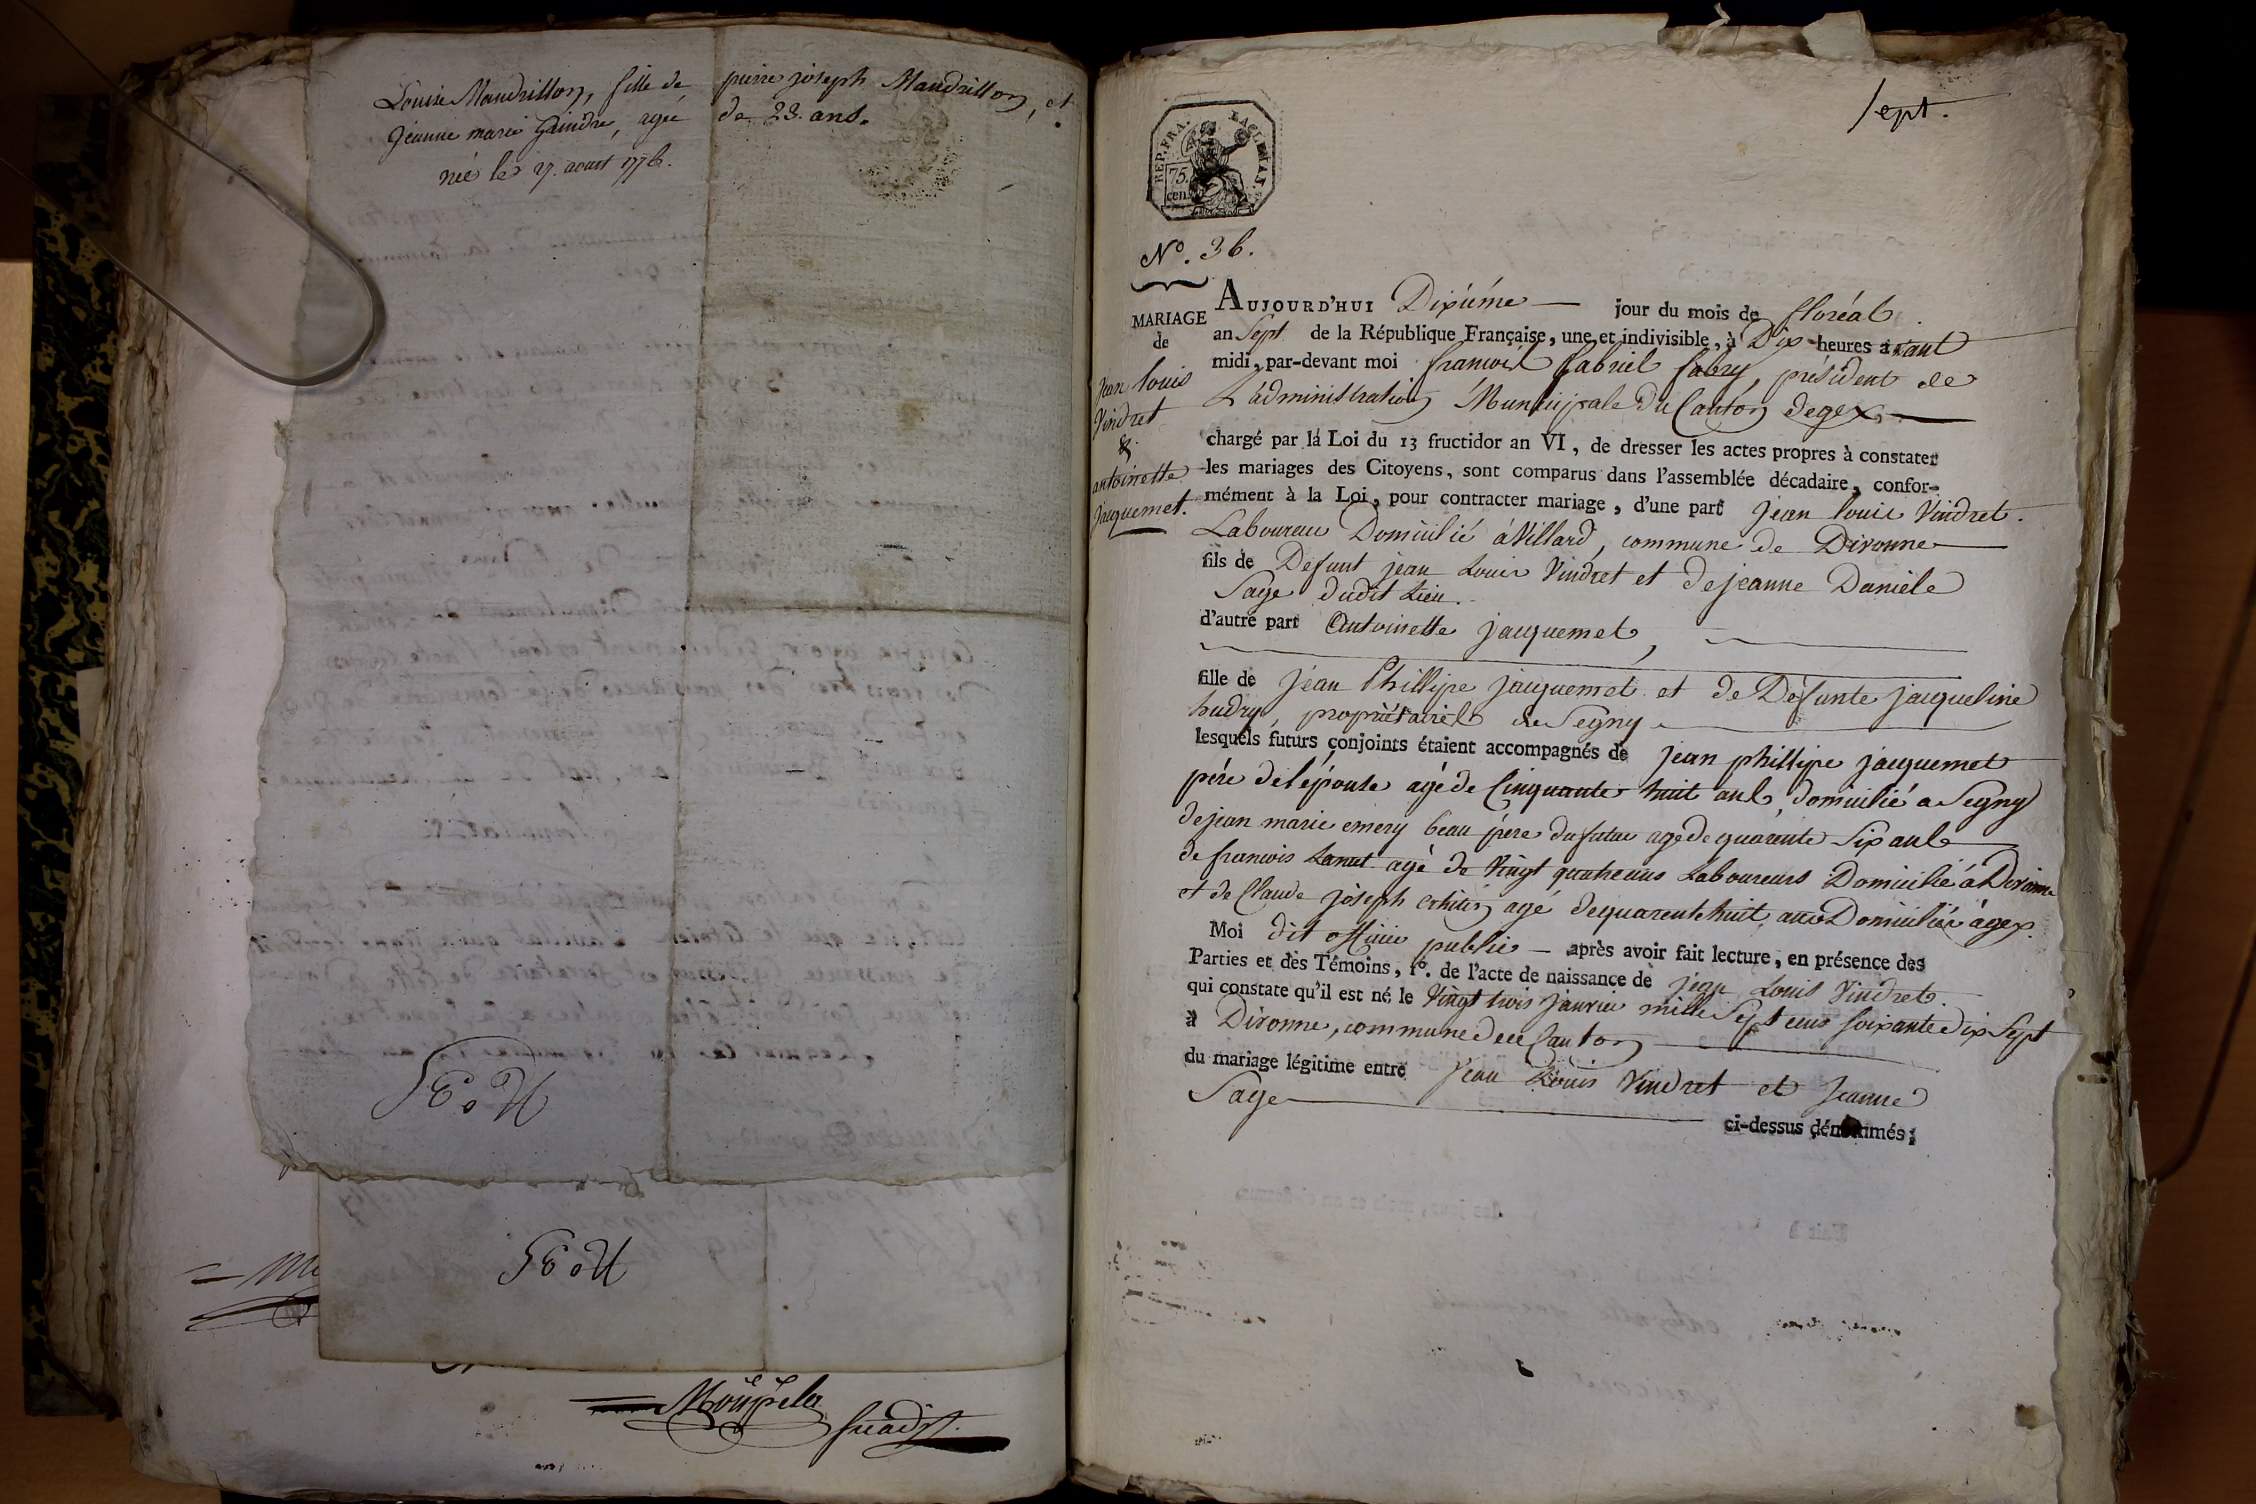 Louise Mandrillon, fille de pierre joseph Mandrillon, et
Jeanne marie Gaindre, agée de 23. ans.
née le 27. aoust 1776.
N.º 35
N.º 35
Mouyela
sept.
REP. FRA.
75.
cen.
Nº. 36.
MARIAGE
de
Jean louis
Vindret
&
antoinette
Jacquemet.
AUJOURD'HUI Dixiéme jour du mois de floréal
an Sept de la République Française, une et indivisible, à Dix heures avant
midi, par-devant moi francois Gabriel fabry, président de
L'administration Municipale Du Canton de gex,
chargé par la Loi du 13 fructidor an VI, de dresser les actes propres à constater
les mariages des Citoyens, sont comparus dans l'assemblée décadaire, confor-
mément à la Loi, pour contracter mariage, d'une part Jean louis Vindret.
Laboureur Domicilié à Villard, commune de Divonne
fils de Defunt jean Louis Vindret et de jeanne Daniele
Sage dudit Lieu.
d'autre part Antoinette jacquemet,
fille de Jean Phillipe jacquemet et de Defunte jacqueline
hudry, propriétaires de Segny
lesquels futurs conjoints étaient accompagnés de jean phillipe jacquemet
père de l'épouse agé de Cinquante huit ans, domicilié a Segny
de jean marie emery beau père du futur agé de quarente Six ans
de francois Lanet agé de Vingt quatre ans Laboureurs Domicilié à Divonne
et de Claude joseph agé de quarente huit ans Domicilié à gex.
Moi dit officier public après avoir fait lecture, en présence des
Parties et des Témoins, 1º. de l'acte de naissance de jean Louis Vindret.
qui constate qu'il est né le Vingt trois janvier mille Sept cens soixante dix Sept
à Divonne, commune de ce Canton
du mariage légitime entre Jean Louis Vindret et Jeanne
Sage
ci-dessus dénommés;